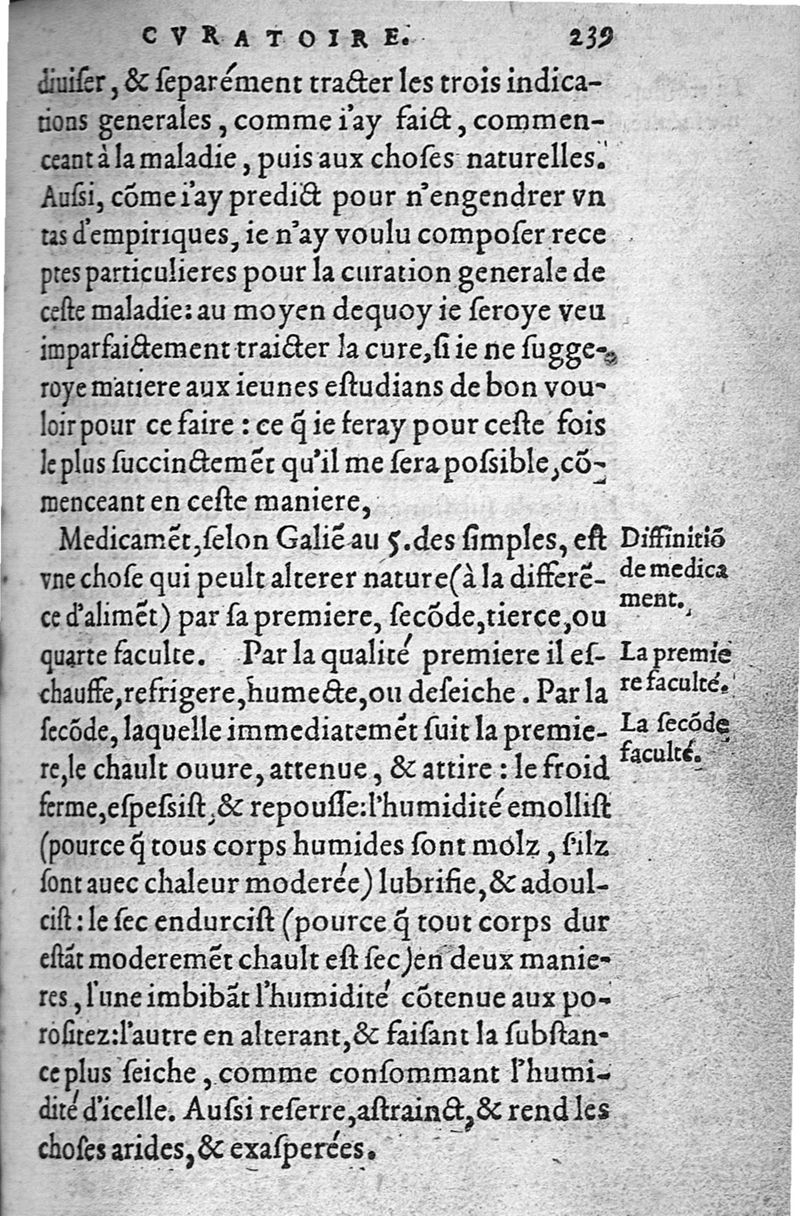 CVRATOIRE. 239
diuiſer, & ſeparément tracter les trois indica-
tions generales, comme i'ay faict, commen-
ceant à la maladie, puis aux choſes naturelles.
Auſsi, cõme i'ay predict pour n'engendrer vn
tas d'empiriques, ie n'ay voulu compoſer rece
ptes particulieres pour la curation generale de
ceſte maladie: au moyen dequoy ie ſeroye veu
imparfaictement traicter la cure, ſi ie ne ſugge-
roye matiere aux ieunes eſtudians de bon vou-
loir pour ce faire : ce q̃ ie feray pour ceſte fois
le plus ſuccinctemẽt qu'il me ſera poſsible, cõ-
menceant en ceſte maniere,
Medicamẽt, ſelon Galiẽ au 5. des ſimples, eſt
vne choſe qui peult alterer nature (à la differẽ-
ce d'alimẽt) par ſa premiere, ſecõde, tierce, ou
quarte faculte. Par la qualité premiere il eſ-
chauffe, refrigere, humecte, ou deſeiche. Par la
ſecõde, laquelle immediatemẽt ſuit la premie-
re, le chault ouure, attenue, & attire : le froid
ferme, eſpeſsiſt, & repouſſe: l'humidité emolliſt
(pource q̃ tous corps humides ſont molz, ſ'ilz
ſont auec chaleur moderée) lubrifie, & adoul-
ciſt : le ſec endurciſt (pource q̃ tout corps dur
eſtãt moderemẽt chault eſt ſec) en deux manie-
res, l'une imbibãt l'humidité cõtenue aux po-
roſitez: l'autre en alterant, & faiſant la ſubſtan-
ce plus ſeiche, comme conſommant l'humi-
dité d'icelle. Auſsi reſerre, aſtrainct, & rend les
choſes arides, & exaſperées.
Diffinitiõ
de medica
ment.
La premie
re faculté.
La ſecõde
faculté.